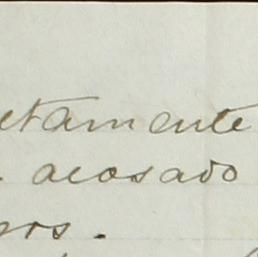 etamente
acosado